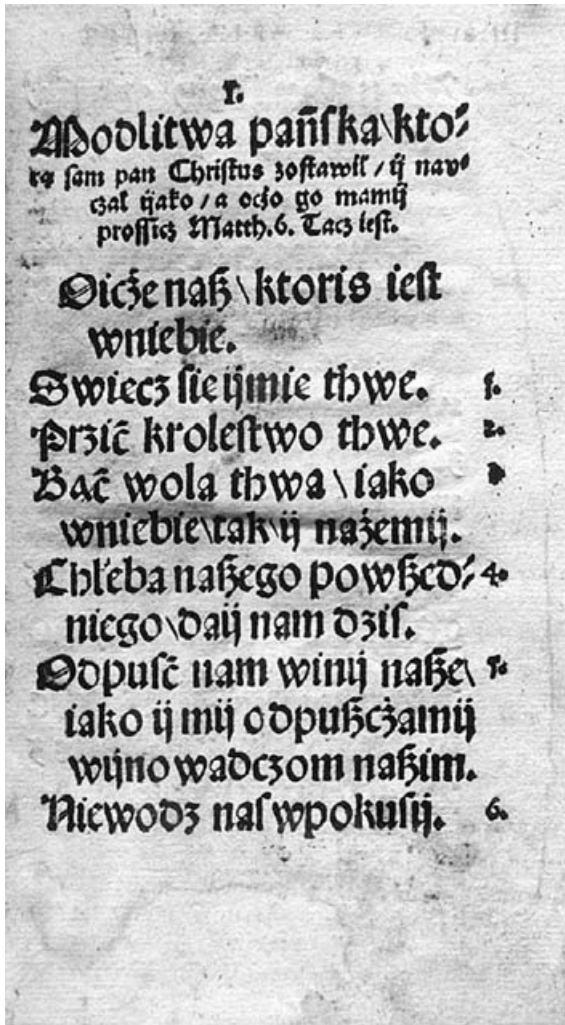 1.
Modlitwa pańſka\kto⸗
rą ſam pan Chriſtus zoſtawił / ij nau⸗
czał ijako / a oczo go mamij
proſſicz Matth.6. Tacz ieſt.
Oicże naß\ktoris ieſt
wniebie.
Swiecz ſie ijmie thwe. 1.
Przić kroleſtwo thwe. 2.
Bać wola thwa\iako 3
wniebie\tak\ij nażemij.
Chleba naßego powßed⸗ 4.
niego\daij nam dziſ.
Odpuſć nam winij naße\ 5.
iako ij mij odpußcżamij
wijnowadczom naßim.
Niewodz naſ wpokuſij. 6.